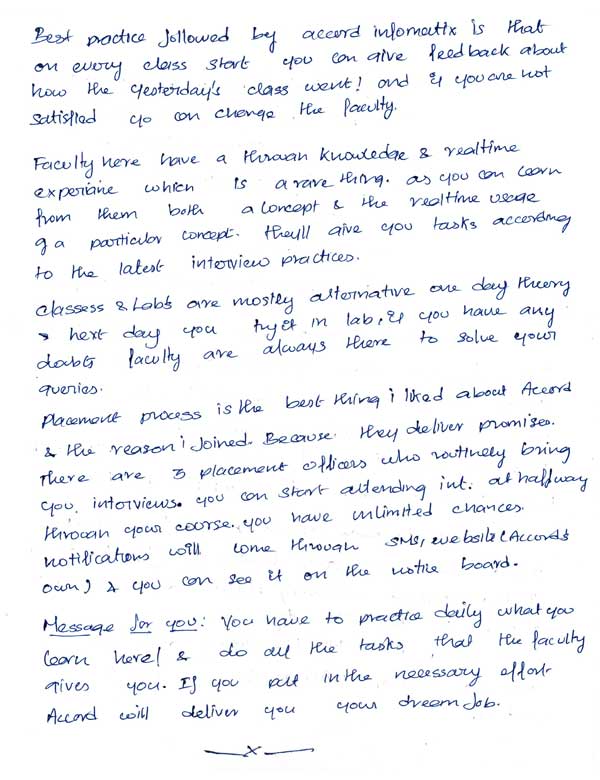 Best practice followed by accord infomatix is that
on every class start you can give feedback about
how the yesterday's class went! and if you are not
satisfied yo can change the faculty.
Faculty here have a through knowledge & realtime
experiane which is a rare thing. as you can learn
from them both a concept & the realtime usage
of a particular concept. they'll give you tasks according
to the latest interview practices.
classess & Lab's are mostly alternative one day theory
& next day you try it in lab, if you have any
doubts faculty are always there to solve your
queries.
Placement process is the best thing i liked about Accord
& the reason i joined. Because they deliver promises.
There are 3 placement officers who routinely bring
you interviews. you can start attending int. at halfway
through your course. you have unlimited chances.
notifications will come through SMS, website (Accord's
own) & you can see it on the notice board.
Message for you: You have to practice daily what you
learn here! & do all the tasks that the faculty
gives you. If you put in the necessary effort.
Accord will deliver you your dream job.
x